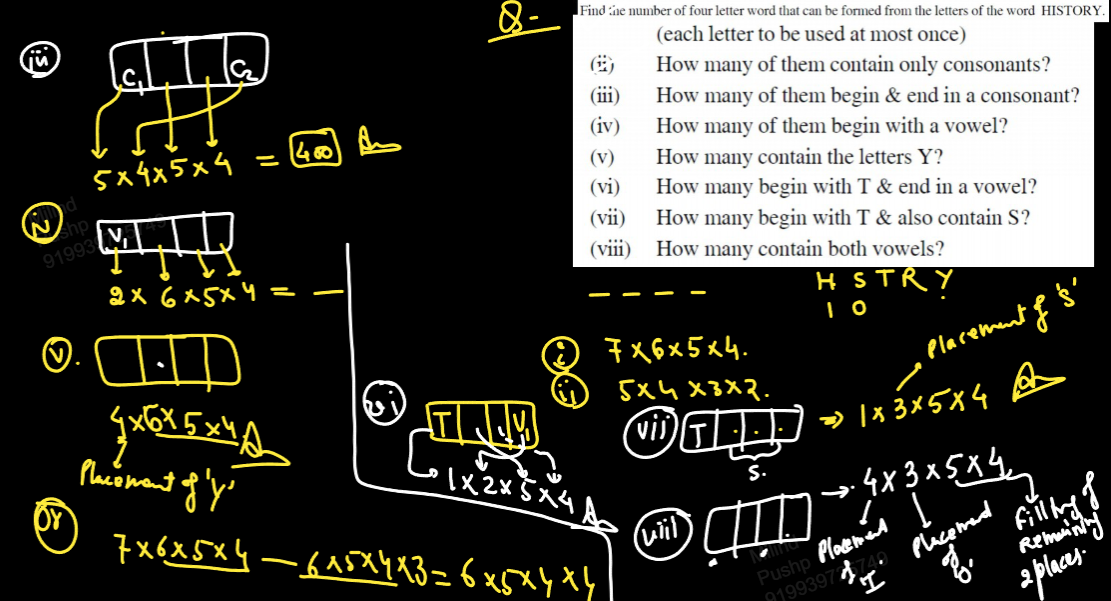 Q-
Find the number of four letter word that can be formed from the letters of the word HISTORY.
(each letter to be used at most once)
(ii) How many of them contain only consonants?
(iii) How many of them begin & end in a consonant?
(iv) How many of them begin with a vowel?
(v) How many contain the letters Y?
(vi) How many begin with T & end in a vowel?
(vii) How many begin with T & also contain S?
(viii) How many contain both vowels?
H S T R Y
I O
(i) 7×6×5×4.
(ii) 5×4×3×2.
(iii) C1 C2
5×4×5×4 = 400 Ans
iv V1
2×6×5×4 = —
(v).
4×6×5×4 A
Placement of 'Y'
Or
7×6×5×4 — 6×5×4×3 = 6×5×4×4
(vi) T V1
1×2×5×4 A
(vii) T ⇒ 1×3×5×4 Ans
S.
Placement of 'S'
(viii) → 4×3×5×4
Placement of I.
Placement of 'O'
Filling of Remaining 2 places.
Pushp